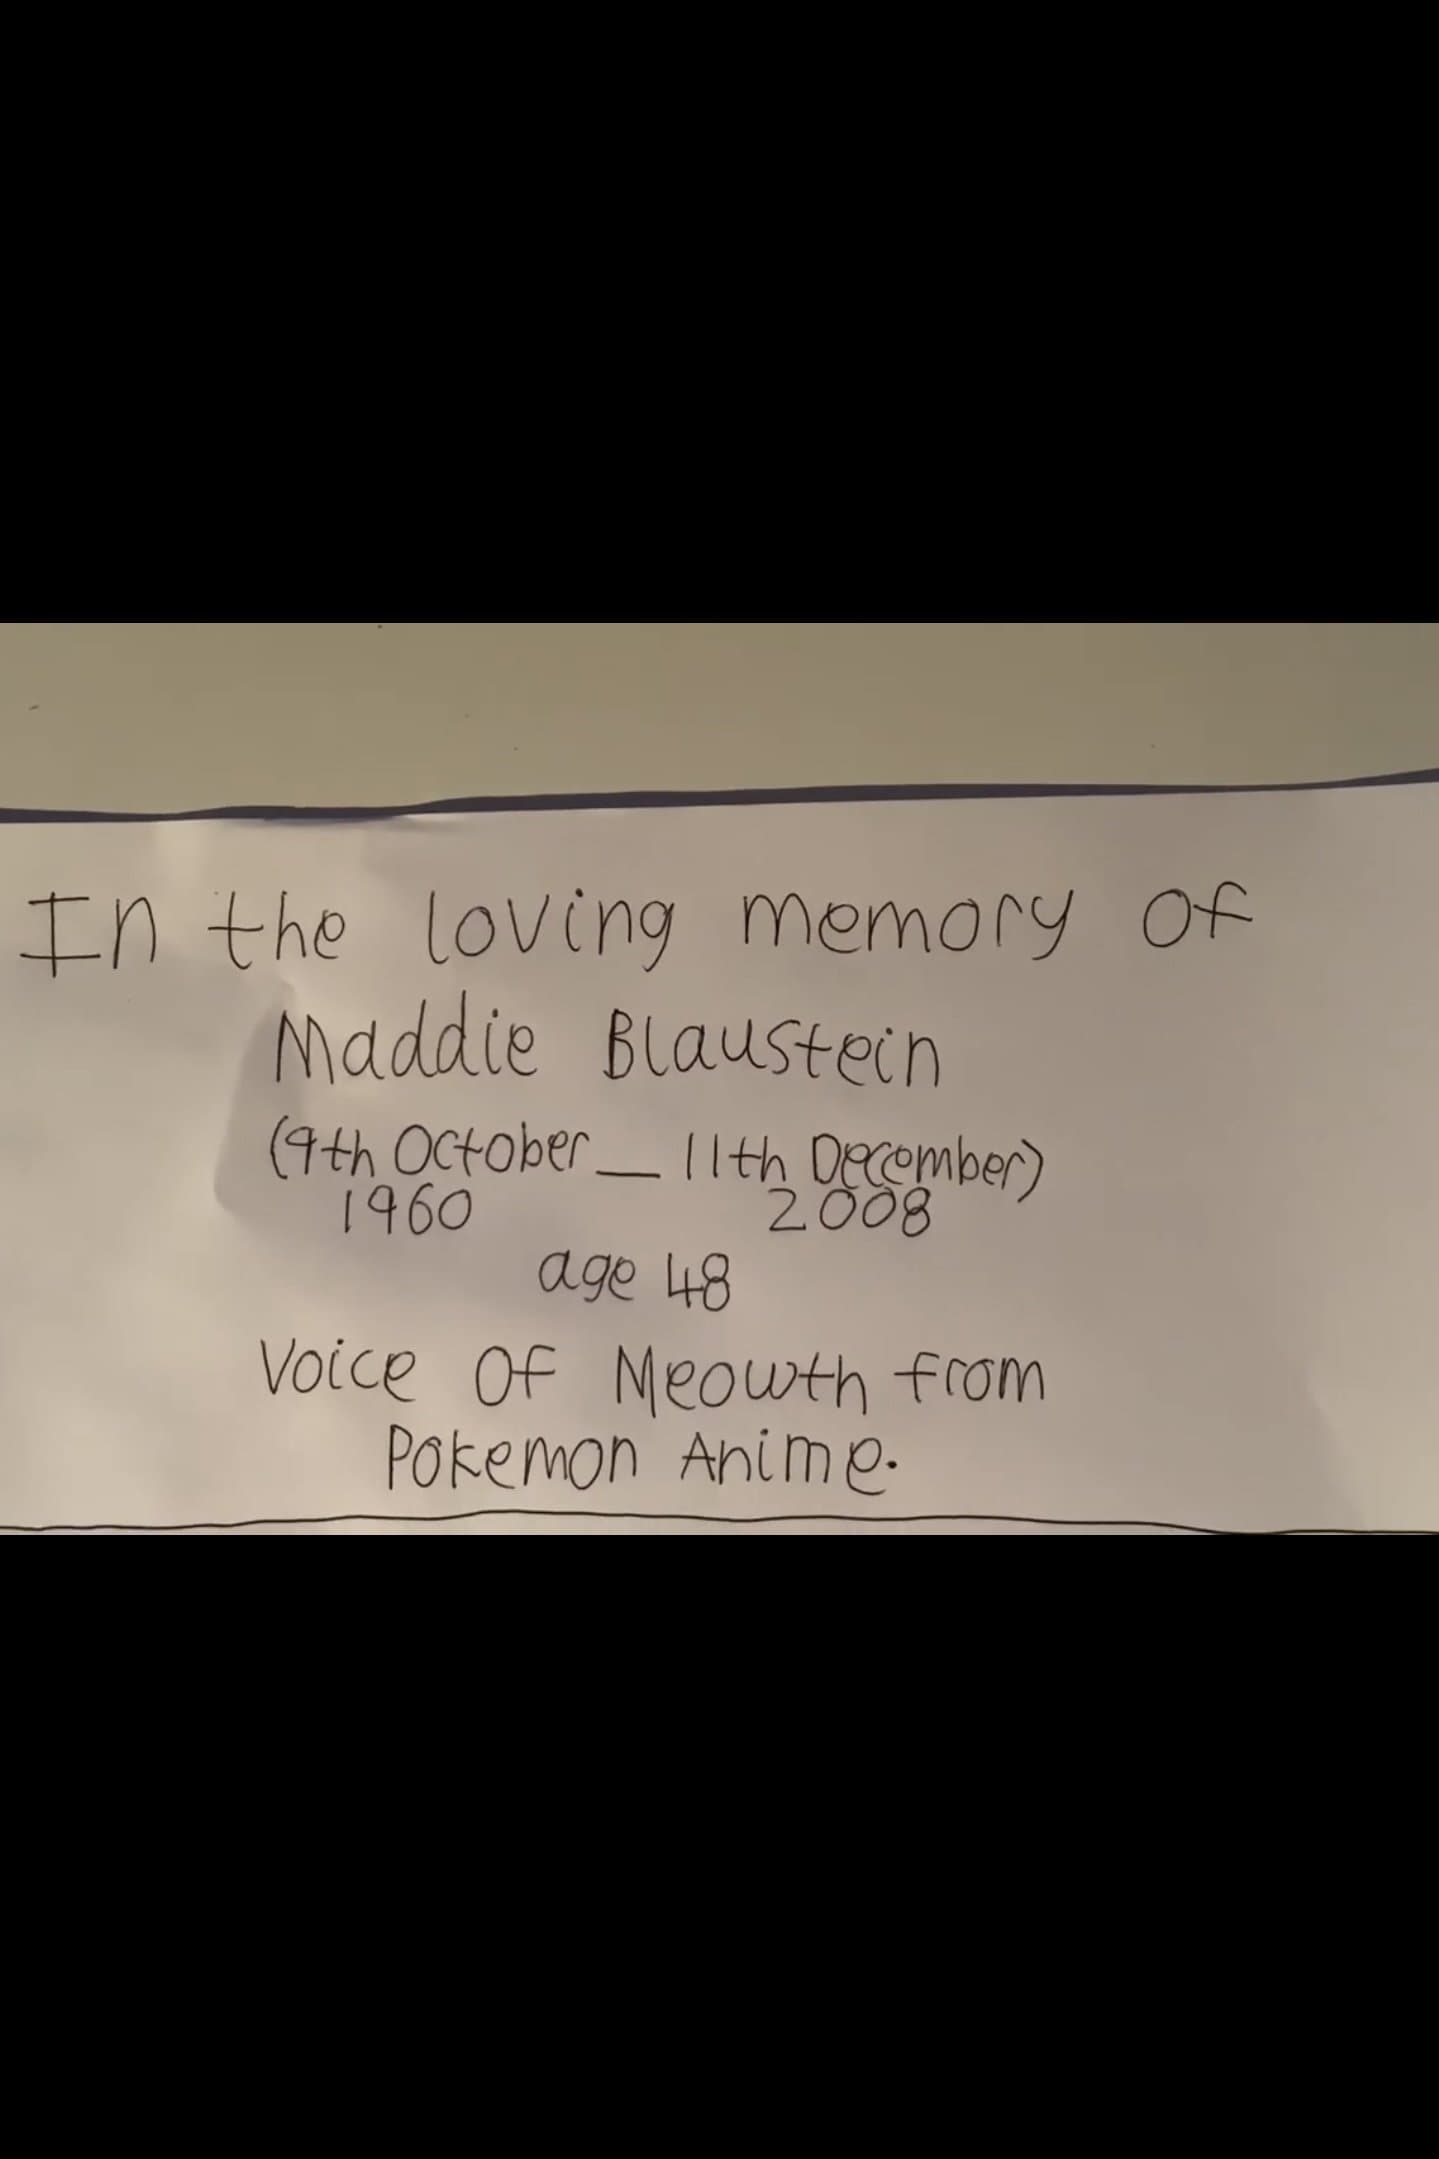 In the loving memory of
Maddie Blaustein
(9th October _ 11th December)
1960 2008
age 48
Voice of Meowth from
Pokemon Anime.